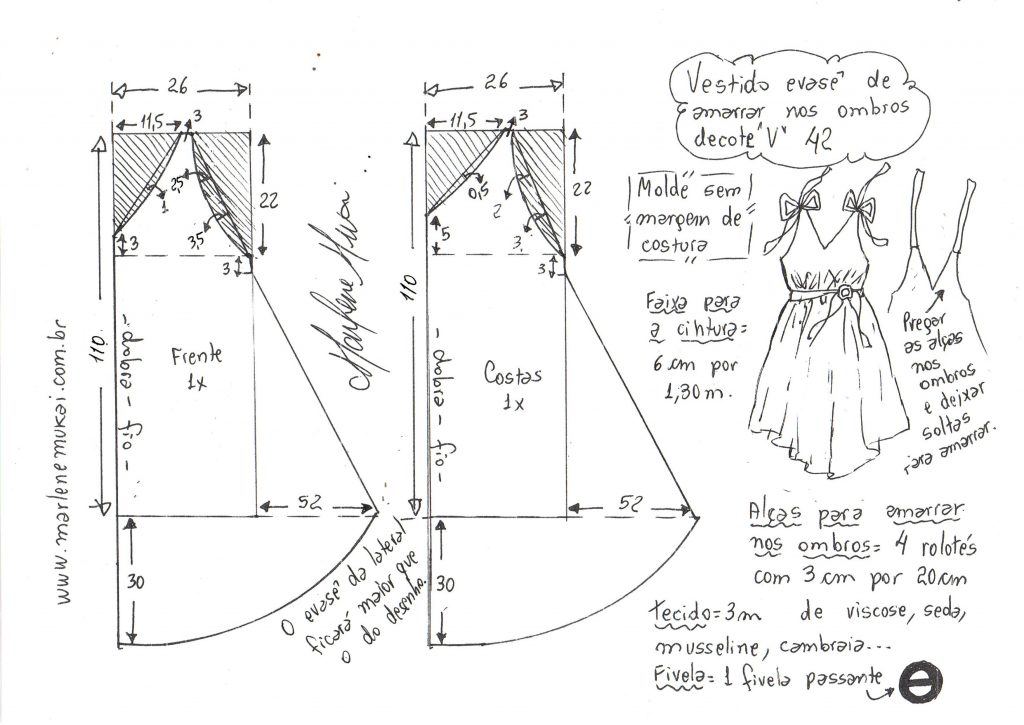 Vestido evasê de
amarrar nos ombros
decote "V" 42
Molde sem
margem de
costura
Faixa para
a cintura=
6 cm por
1,30 m.
Pregar
as alças
nos
ombros
e deixar
soltas
para amarrar.
26
11,5
3
2,5
1
3,5
22
3
3
110
- dobra - fio -
Frente
1x
52
30
26
11,5
3
0,5
2
3
22
5
3
110
- dobra - fio -
Costas
1x
52
30
Marlene Mukai
www.marlenemukai.com.br
O evasê da lateral
ficará maior que
o do desenho.
Alças para amarrar
nos ombros= 4 rolotés
com 3 cm por 20 cm
Tecido= 3 m de viscose, seda,
musseline, cambraia...
Fivela= 1 fivela passante